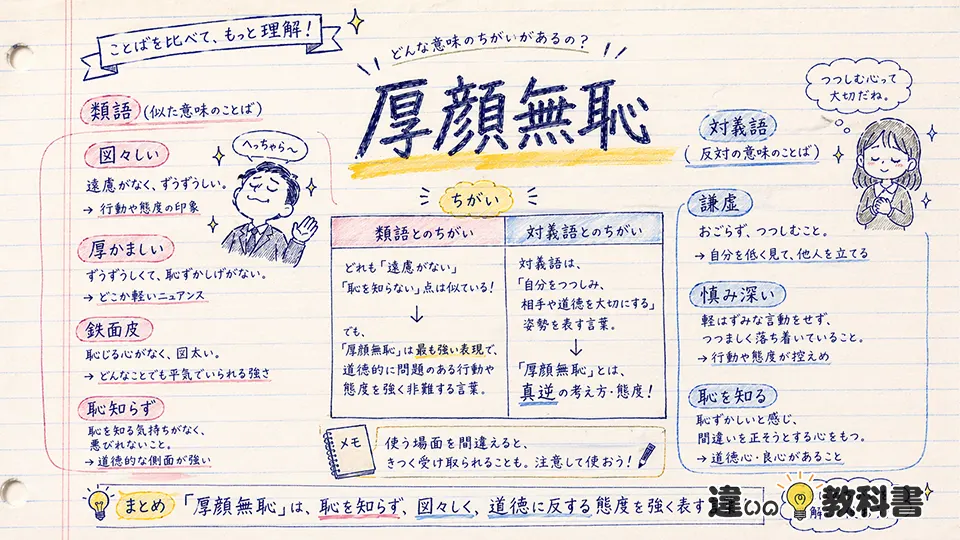 ことばを比べて、もっと理解！
どんな意味のちがいがあるの？
厚顔無恥
つつしむ心って
大切だね。
類語(似た意味のことば)
図々しい
遠慮がなく、ずうずうしい。
→ 行動や態度の印象
へっちゃら〜
厚かましい
ずうずうしくて、恥ずかしげがない。
→ どこか軽いニュアンス
鉄面皮
恥じる心がなく、図太い。
→ どんなことでも平気でいられる強さ
恥知らず
恥を知る気持ちがなく、
悪びれないこと。
→ 道徳的な側面が強い
ちがい
類語とのちがい
どれも「遠慮がない」
「恥を知らない」点は似ている！
↓
でも、
「厚顔無恥」は最も強い表現で、
道徳的に問題のある行動や
態度を強く非難する言葉。
対義語とのちがい
対義語は、
「自分をつつしみ、
相手や道徳を大切にする」
姿勢を表す言葉。
↓
「厚顔無恥」とは、
真逆の考え方・態度！
メモ
使う場面を間違えると、
きつく受け取られることも。注意して使おう！
対義語
(反対の意味のことば)
謙虚
おごらず、つつしむこと。
→ 自分を低く見て、他人を立てる
慎み深い
軽はずみな言動をせず、
つつましく落ち着いていること。
→ 行動や態度が控えめ
恥を知る
恥ずかしいと感じ、
間違いを正そうとする心をもつ。
→ 道徳心・良心があること
まとめ
「厚顔無恥」は、恥を知らず、図々しく、道徳に反する態度を強く表す
違いの教科書